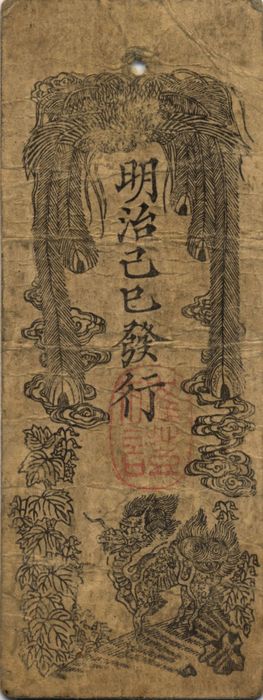 明治己巳發行